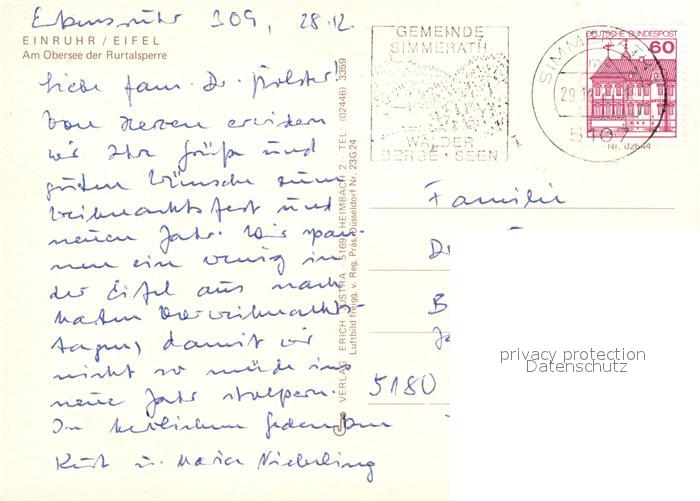 Erkensruhr 309, 28.12.
EINRUHR / EIFEL
Am Obersee der Rurtalsperre
Liebe Fam. Dr. Pölster!
Von Herzen erwidern
wir Ihre Grüße und
guten Wünsche zum
Weihnachtsfest und
neuen Jahr. Wir span-
nen ein wenig in
der Eifel aus nach
harten Vorweihnachts-
tagen, damit wir
nicht so müde ins
neue Jahr stolpern.
In herzlichem Gedenken
Kurt u. Maria Nieberling
VERLAG ERICH JUSTRA · 5169 HEIMBACH 2 · TEL. (02446) 3359
Luftbild freigg. v. Reg. Präs. Düsseldorf Nr. 23G24
GEMEINDE
SIMMERATH
WÄLDER
BERGE · SEEN
SIMMERATH
29.12.
5107
DEUTSCHE BUNDESPOST
60
Nr. 02644
Familie
D
B
5180
privacy protection
Datenschutz